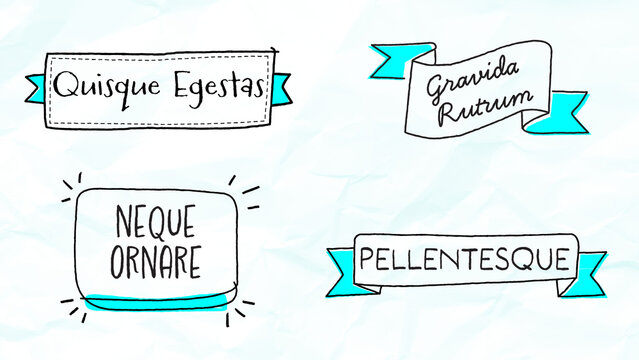 Quisque Egestas
Gravida
Rutrum
NEQUE
ORNARE
PELLENTESQUE